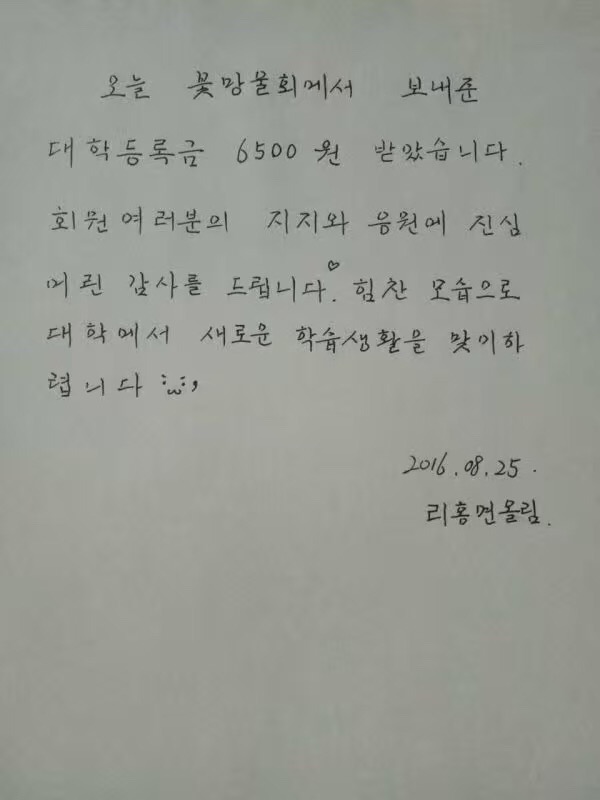 오늘 꽃망울회에서 보내준
대학등록금 6500원 받았습니다.
회원여러분의 지지와 응원에 진심
어린 감사를 드립니다.♡ 힘찬 모습으로
대학에서 새로운 학습생활을 맞이하
렵니다
2016.08.25.
리홍면올림.